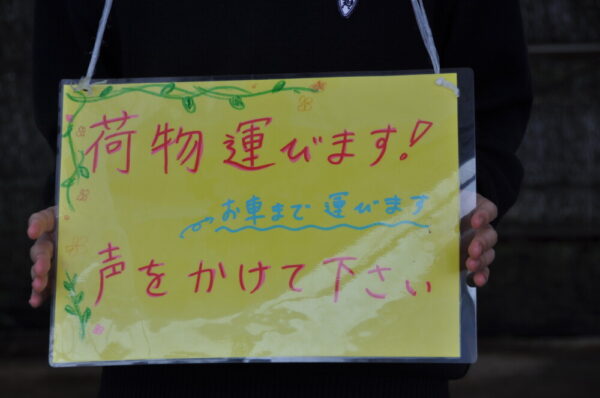 荷物運びます!
お車まで運びます
声をかけて下さい